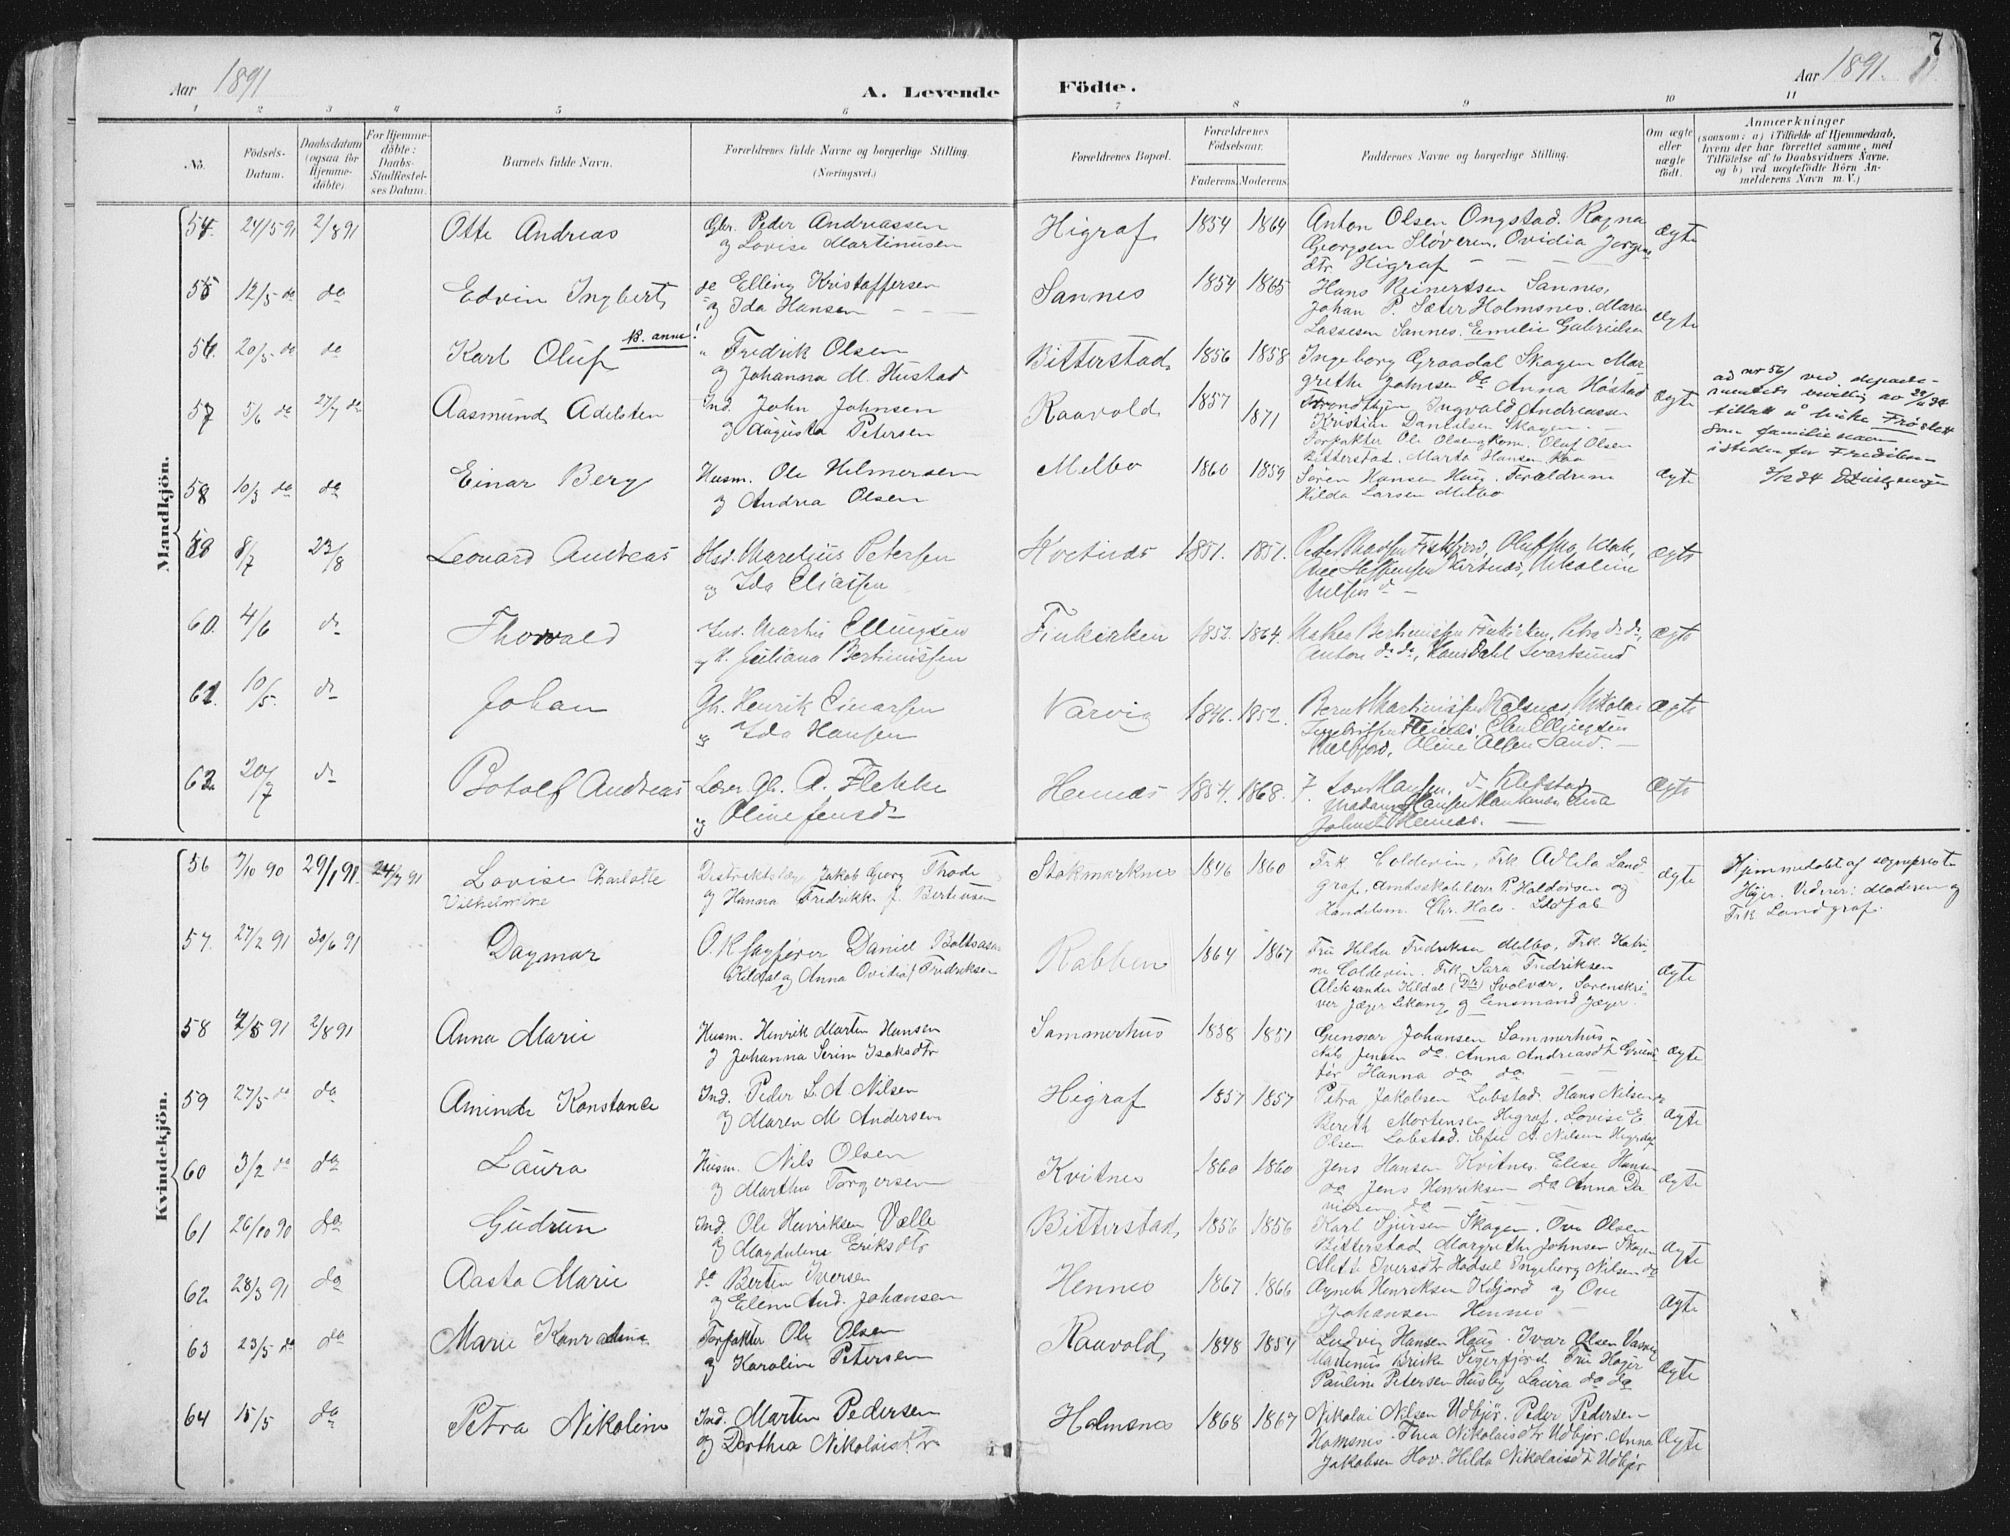 Aar 1891
A. Levende
Födte.
Aar 1891.
7
1 2 3 4 5 6 7 8 9 10 11
No.
Födsels-
Datum.
Daabsdatum
(ogsaa for
Hjemme-
döbte).
For Hjemme-
döbte:
Daabs-
Stadfestel-
ses Datum.
Barnets fulde Navn.
Forældrenes fulde Navne og borgerlige Stilling.
(Næringsvei.)
Forældrenes Bopæl.
Forældrenes
Födselsaar.
Faderens.
Moderens.
Faddernes Navne og borgerlige Stilling.
Om ægte
eller
uægte
födt.
Anmærkninger
(saasom: a) i Tilfælde af Hjemmedaab,
hvem der har forrettet samme, med
Tilföielse af to Daabsvidners Navne,
og b) ved uægtefödte Börn An-
melderens Navn m. V.)
Mandkjön.
54. 24/5 91 2/8 91 Otte Andreas
Gbr. Peder Andreassen
og Lovise Martinusen
Higraf 1854 1864
Anton Olsen Ongstad. Ragna
Georgsen Sløveren. Ovidia Jorgens
dtr. Higraf
Ægte
55 12/5 do do Edvin Ingbert
do Elling Kristoffersen
og Ida Hansen
Sannes 1854 1865
Hans Reinertsen Sannes,
Johan P. Sæter Holmsnes. Maren
Lassesen Sannes. Emilie Gabrielsen
Ægte
56. 20/5 do do Karl Oluf
" Fredrik Olsen
og Johanna M. Hustad
Bitterstad 1856 1858
Ingeborg Graadal Skagen Mar-
grethe Johnsen do Anna Høstad
Trondhjem Ingvald Andreassen
Ægte
ad nr 56/ ved departe-
mentets bevilling av
tillatt å bruke Frøslett
som familienavn
istedenfor Fredriksen
57 5/6 do 27/7 do Aasmund Adelsten
Ind. John Johnsen
og Augusta Petersen
Raavold 1857 1871
Kristian Danielsen Skagen.
Forpakter Ole Olsen og Kone. Oluf Olsen
Bitterstad. Marta Hansen
58 10/3 do do Einar Berg
Husm. Ole Hilmersen
og Andrea Olsen
Melbo 1860 1859
Søren Hansen Haug. Forældrene
Hilda Larsen Melbo
Ægte
59 8/7 23/8 Leonard Andreas
Marelius Petersen
og Ida Eliassen
1851. 1851.
Ægte
60. 4/6 do Thorvald
Ind. Martin Ellingsen
og Juliana Bertinissen
Finkirken 1852. 1864.
Anton do do, Hans Dahl Svartsund
Ægte
61. 10/5. do Johan
Gbr. Henrik Einarsen
og Ida Hansen
Varvig 1846. 1852.
Ægte
62 20/7 do Botolf Andreas
Lærer Gbr. A. Flekke
og Oline Jensd
Hennes 1854. 1868.
Ægte
Kvindekjön.
56 7/10 90 29/1 91. 24/7 91 Lovise Charlotte
Vilhelmine
Distriktslæge Jakob Georg Thode
og Hanna Fredrikke J. Bertensen
Stokmarknes 1846 1860
Frk Coldevin, Frk Adlela Land-
graf. Amtsskolelærer P. Haldorsen og
Handelsm. Chr. Hals.
Ægte
Hjemmedøbt af sognepræst
Høyer. Vidner: Moderen og
Frk Landgraf.
57. 27/2 91 30/6 91 Dagmar
O.R. Sagfører Daniel Boltsasar
Hildal og Anna Ovidia Fredriksen
Rabben 1864 1867
Fru Hilda Fredriksen Melbo, Frk. Katri-
ne Coldevin. Frk Sara Fredriksen
Aleksander Hildal Svolvær, Sorenskri-
ver Jæger Lekang og Lensmand Jæger.
Ægte
58 2/5 91 2/8 91 Anna Marie
Husm. Henrik Marten Hansen
og Johanna Serine Isaksdtr
Sommerhus 1838 1851
Gunnar Johansen Sommerhus.
Nils Jensen do. Anna Andreasdtr
Hanna do do
Ægte
59 27/5 do do Aminde Konstance
Ind. Peder L. A Nilsen
og Maren M Andersen
Higraf 1857 1857
Petra Jakobsen Lobstad. Hans Nilsen
Bereth Mortensen Higraf. Lovise E
Olsen Lobstad. Sofie A. Nilsen Higraf
Ægte
60 3/2 do do Laura
Husm. Nils Olsen
og Martha Torgersen
Kvitnes 1860 1860
Jens Hansen Kvitnes. Elise Hansen
do Jens Henriksen do Anna Da
nielsen do
Ægte
61 26/10 90 do Gudrun
Ind. Ole Henriksen Valle
og Magdalene Eriksdtr
Bitterstad 1856 1856
Karl Sjursen Skagen. Ove Olsen
Bitterstad Margrethe Johnsen Skagen
Alet Iversdtr Hadsel Ingeborg Nilsen do
Ægte
62 28/3 91 do Aasta Marie
do Bertin Iversen
og Elen And. Johansen
Hennes 1867 1866
Agnete Henriksen Kfjord og Ove
Johansen Hennes
Ægte
63 23/5 do do Marie Konradine
Forpakter Ole Olsen
og Karoline Petersen
Raavold 1848 1854
Ludvig Hansen Haug. Ivar Olsen Varvig
Marinius Brekke Sigerfjord Fru Høyer
Pauline Petersen Husby Laura do do
Ægte
64 15/5 do Petra Nikoline
Ind. Marten Pedersen
og Dorthea Nikolaisdtr
Holmsnes 1868 1867
Nikolai Nilsen Udbjør. Peder Pedersen
Homsnes. Thea Nikolaisdtr Udbjør. Anna
Jakobsen Hov. Hilda Nikolaisdtr Udbjør
Ægte